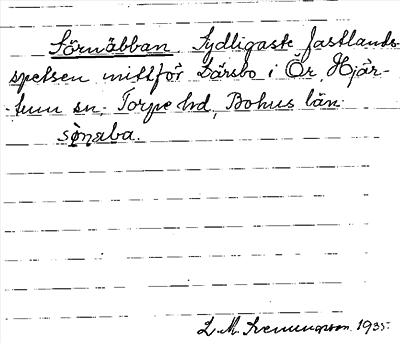 Sörnäbban. Sydligaste fastlands-
spetsen mittför Lärsbo i Ör. Hjär-
tum sn. Torpe hd, Bohus län.
sö̀nạba.
L. M. Svenungsson. 1935.